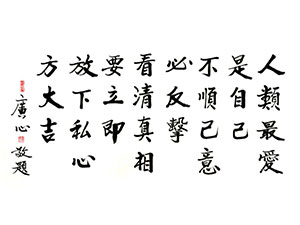 人類最愛
是自己
不順己意
必反擊
看清真相
要立即
放下私心
方大吉
廣心敬題